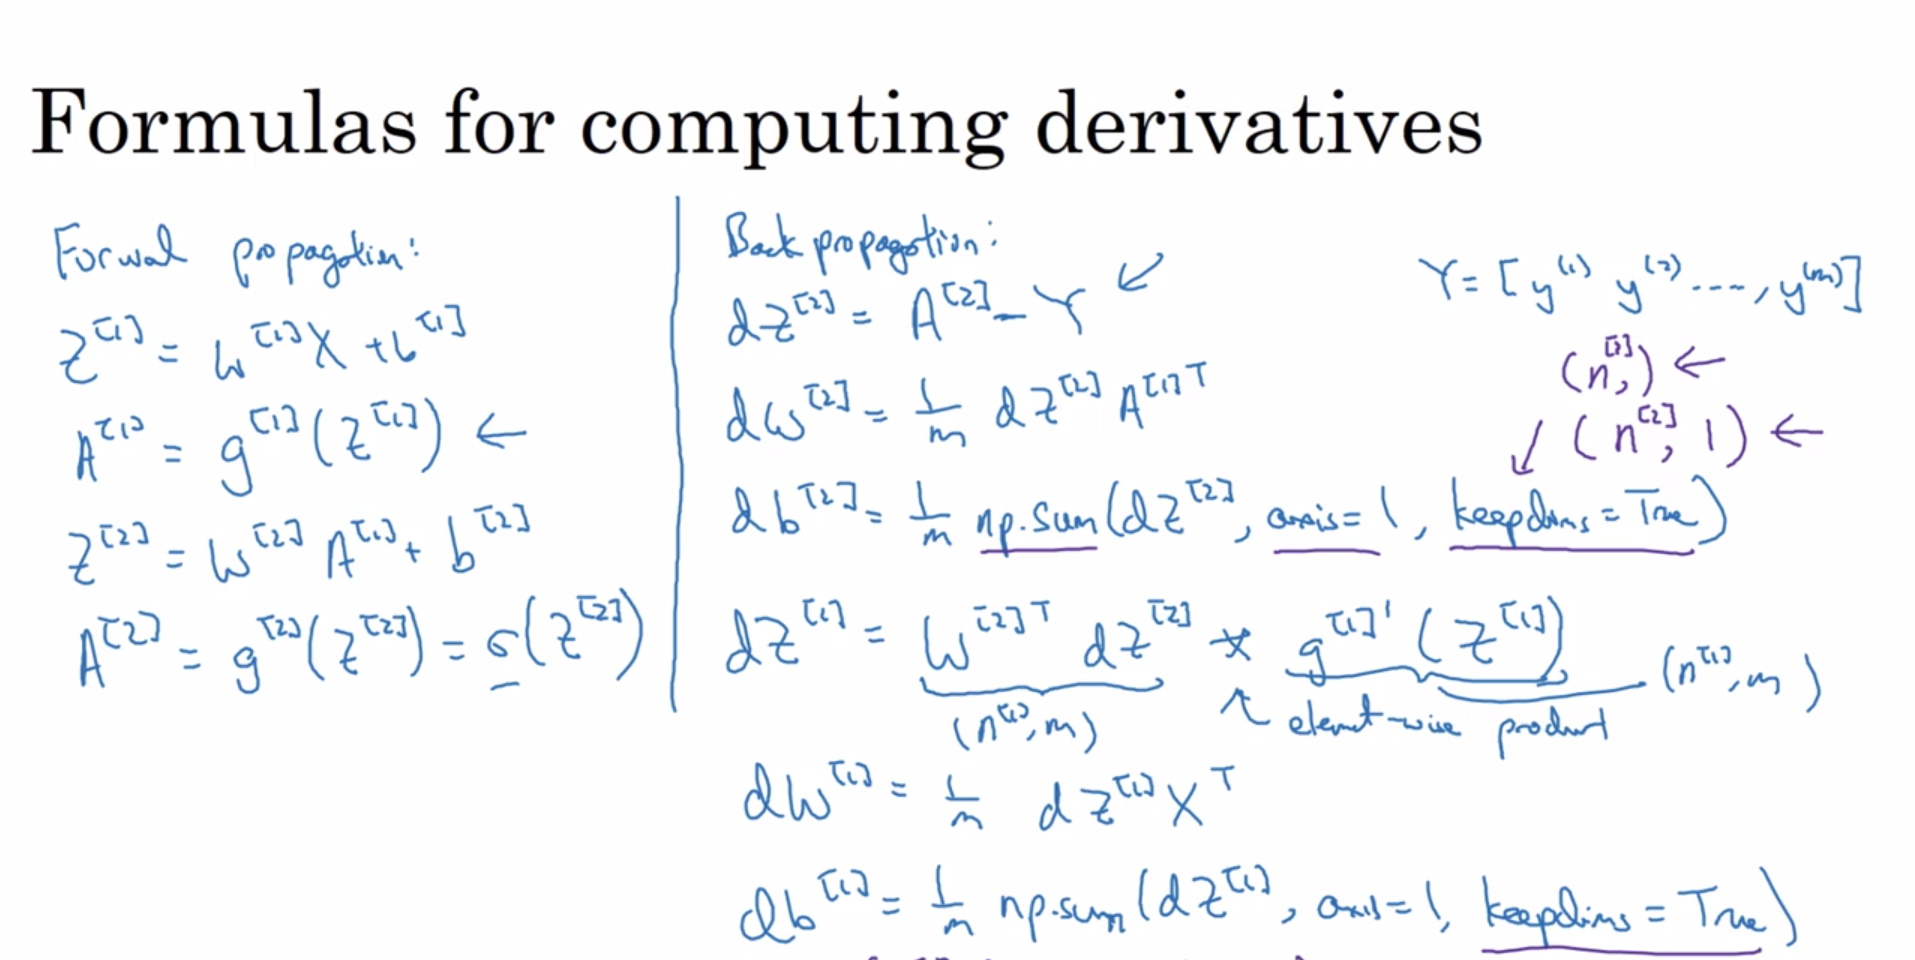 Formulas for computing derivatives
Forwal propagation:
Z^[1] = W^[1]X + b^[1]
A^[1] = g^[1](Z^[1]) ←
Z^[2] = W^[2] A^[1] + b^[2]
A^[2] = g^[2](Z^[2]) = σ(Z^[2])
Back propagation:
dZ^[2] = A^[2] - Y ↙
Y = [y^(1) y^(2) ...., y^(m)]
dW^[2] = 1/m dZ^[2] A^[1]T
(n^[2],) ←
(n^[2], 1) ←
db^[2] = 1/m np.sum(dZ^[2], axis=1, keepdims=True)
dZ^[1] = W^[2]T dZ^[2] * g^[1]'(Z^[1])
(n^[1], m)
element-wise product
(n^[1], m)
dW^[1] = 1/m dZ^[1] X^T
db^[1] = 1/m np.sum(dZ^[1], axis=1, keepdims=True)